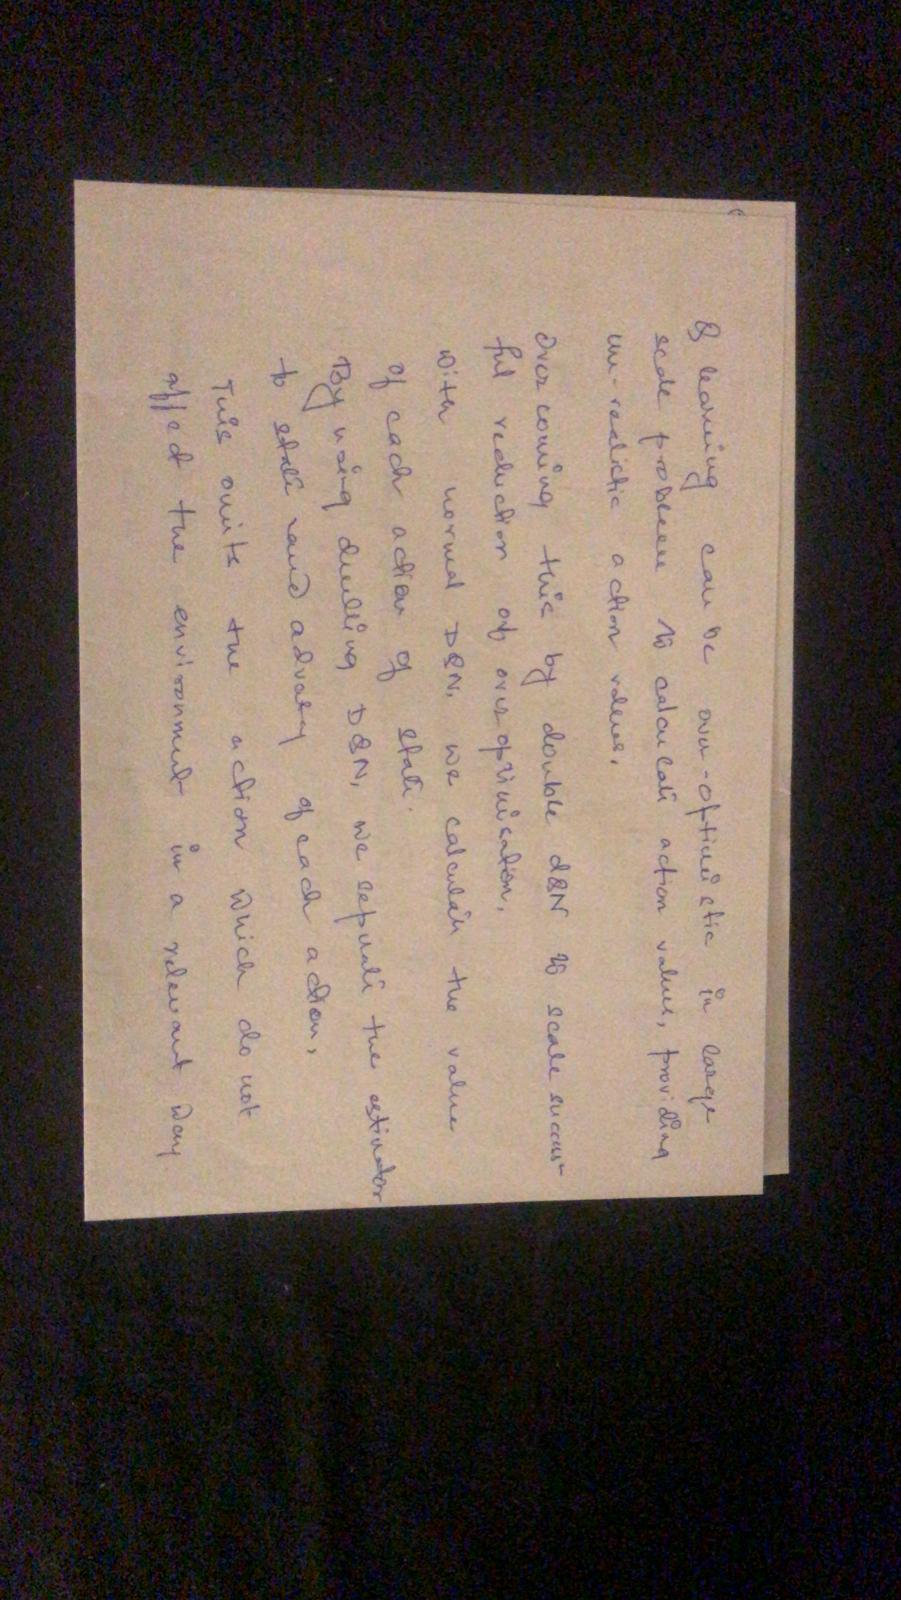 Q learning can be over-optimistic in large
scale problem to calculate action values, providing
un-realistic action values.
Over coming this by double dQN to scale success-
ful reduction of over optimisation.
With normal DQN, we calculate the value
of each action of state.
By using duelling DQN, we sepuate the estimator
to state and advatag of each action,
This omits the action which do not
affect the environment in a relevant way